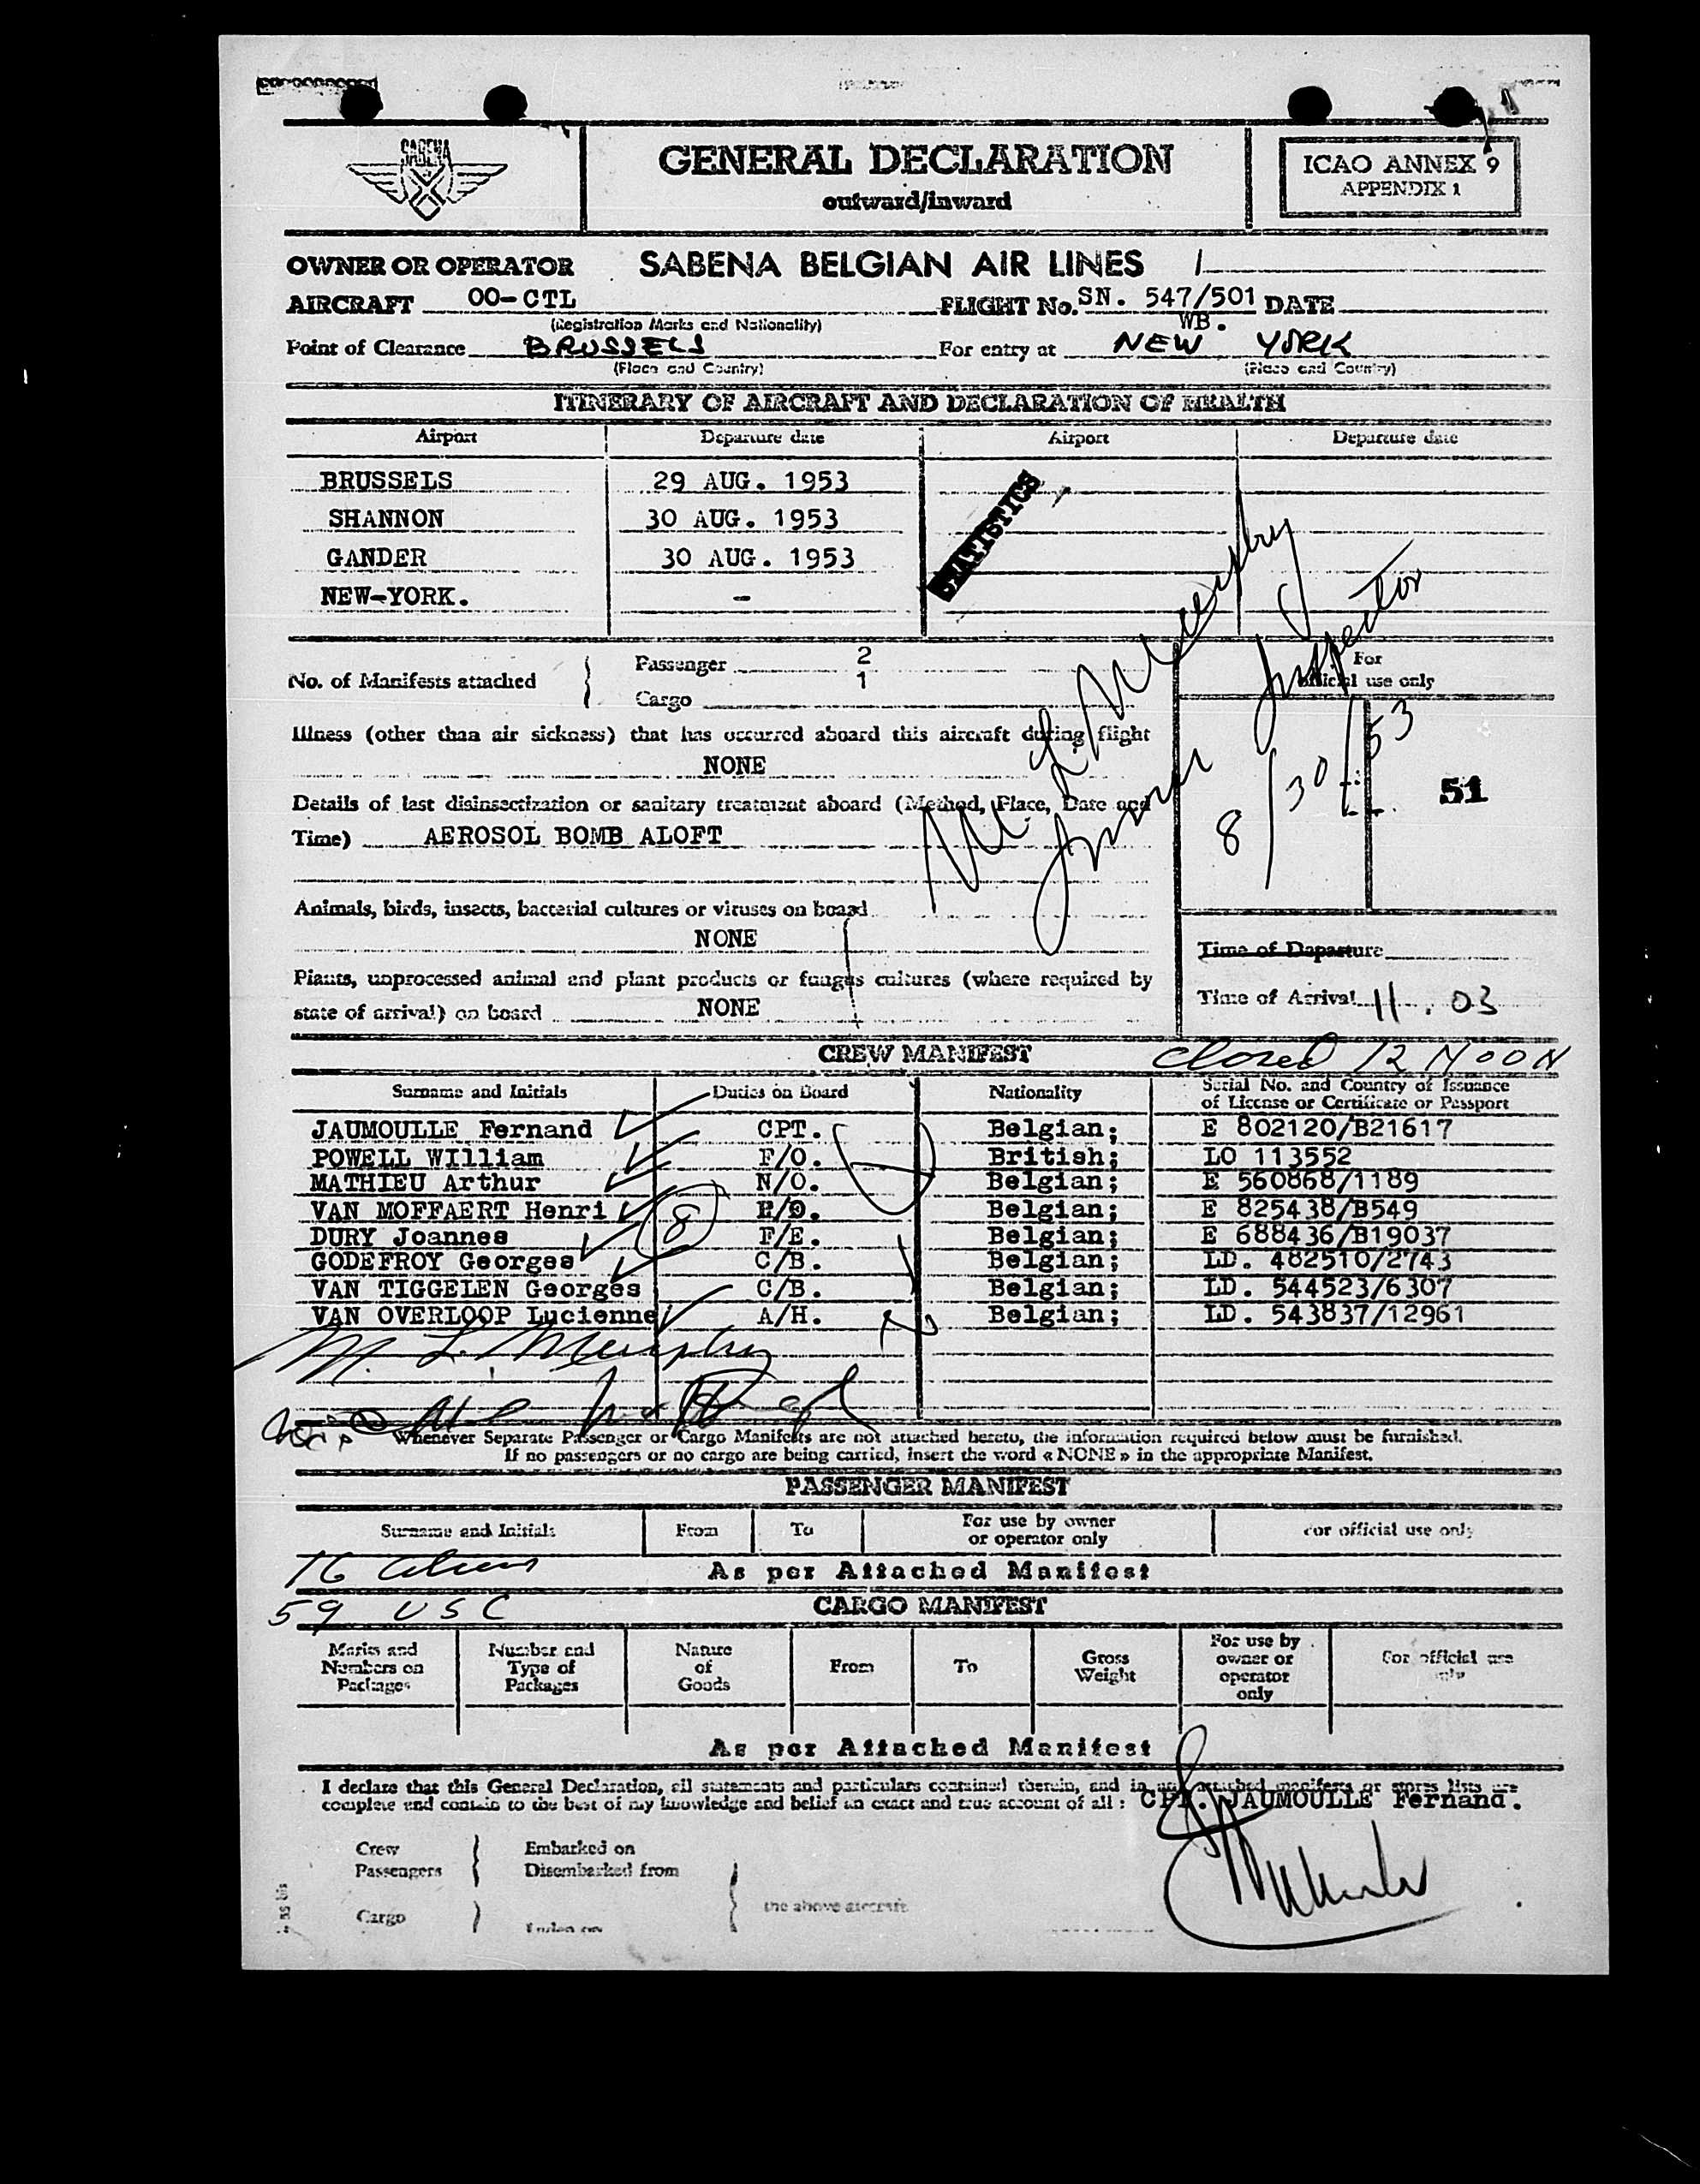 SABENA
GENERAL DECLARATION
outward/inward
ICAO ANNEX 9
APPENDIX 1
OWNER OR OPERATOR SABENA BELGIAN AIR LINES
AIRCRAFT OO-CTL FLIGHT No. SN. 547/501 DATE
(Registration Marks and Nationality) WB.
Point of Clearance BRUSSELS For entry at NEW YORK
(Place and Country) (Place and Country)
ITINERARY OF AIRCRAFT AND DECLARATION OF HEALTH
Airport Departure date Airport Departure date
BRUSSELS 29 AUG. 1953
SHANNON 30 AUG. 1953
GANDER 30 AUG. 1953
NEW-YORK. -
STATISTICS
M. L. Murphy
Immr Inspector
No. of Manifests attached
Passenger 2
Cargo 1
For
official use only
8/30/53
51
Illness (other than air sickness) that has occurred aboard this aircraft during flight
NONE
Details of last disinsectization or sanitary treatment aboard (Method, Place, Date and
Time) AEROSOL BOMB ALOFT
Animals, birds, insects, bacterial cultures or viruses on board
NONE
Plants, unprocessed animal and plant products or fungus cultures (where required by
state of arrival) on board NONE
Time of Departure
Time of Arrival 11.03
CREW MANIFEST closed 12 NOON
Surname and Initials Duties on Board Nationality Serial No. and Country of Issuance
of License or Certificate or Passport
JAUMOULLE Fernand CPT. Belgian; E 802120/B21617
POWELL WIlliam F/O. British; LO 113552
MATHIEU Arthur N/O. Belgian; E 560868/1189
VAN MOFFAERT Henri Belgian; E 825438/B549
DURY Joannes F/E. Belgian; E 688436/B19037
GODEFROY Georges C/B. Belgian; LD. 482510/2743
VAN TIGGELEN Georges C/B. Belgian; LD. 544523/6307
VAN OVERLOOP Lucienne A/H. Belgian; LD. 543837/12961
8
M. L. Murphy
Whenever Separate Passenger or Cargo Manifests are not attached hereto, the information required below must be furnished.
If no passengers or no cargo are being carried, insert the word « NONE » in the appropriate Manifest.
PASSENGER MANIFEST
Surname and Initials From To For use by owner
or operator only For official use only
16 aliens As per Attached Manifest
59 USC CARGO MANIFEST
Marks and
Numbers on
Packages
Number and
Type of
Packages
Nature
of
Goods
From
To
Gross
Weight
For use by
owner or
operator
only
For official use
only
As per Attached Manifest
I declare that this General Declaration, all statements and particulars contained therein, and in any attached manifests or stores lists are
complete and contain to the best of my knowledge and belief an exact and true account of all : CPT. JAUMOULLE Fernand.
Crew
Passengers
Embarked on
Disembarked from
Cargo
the above aircraft